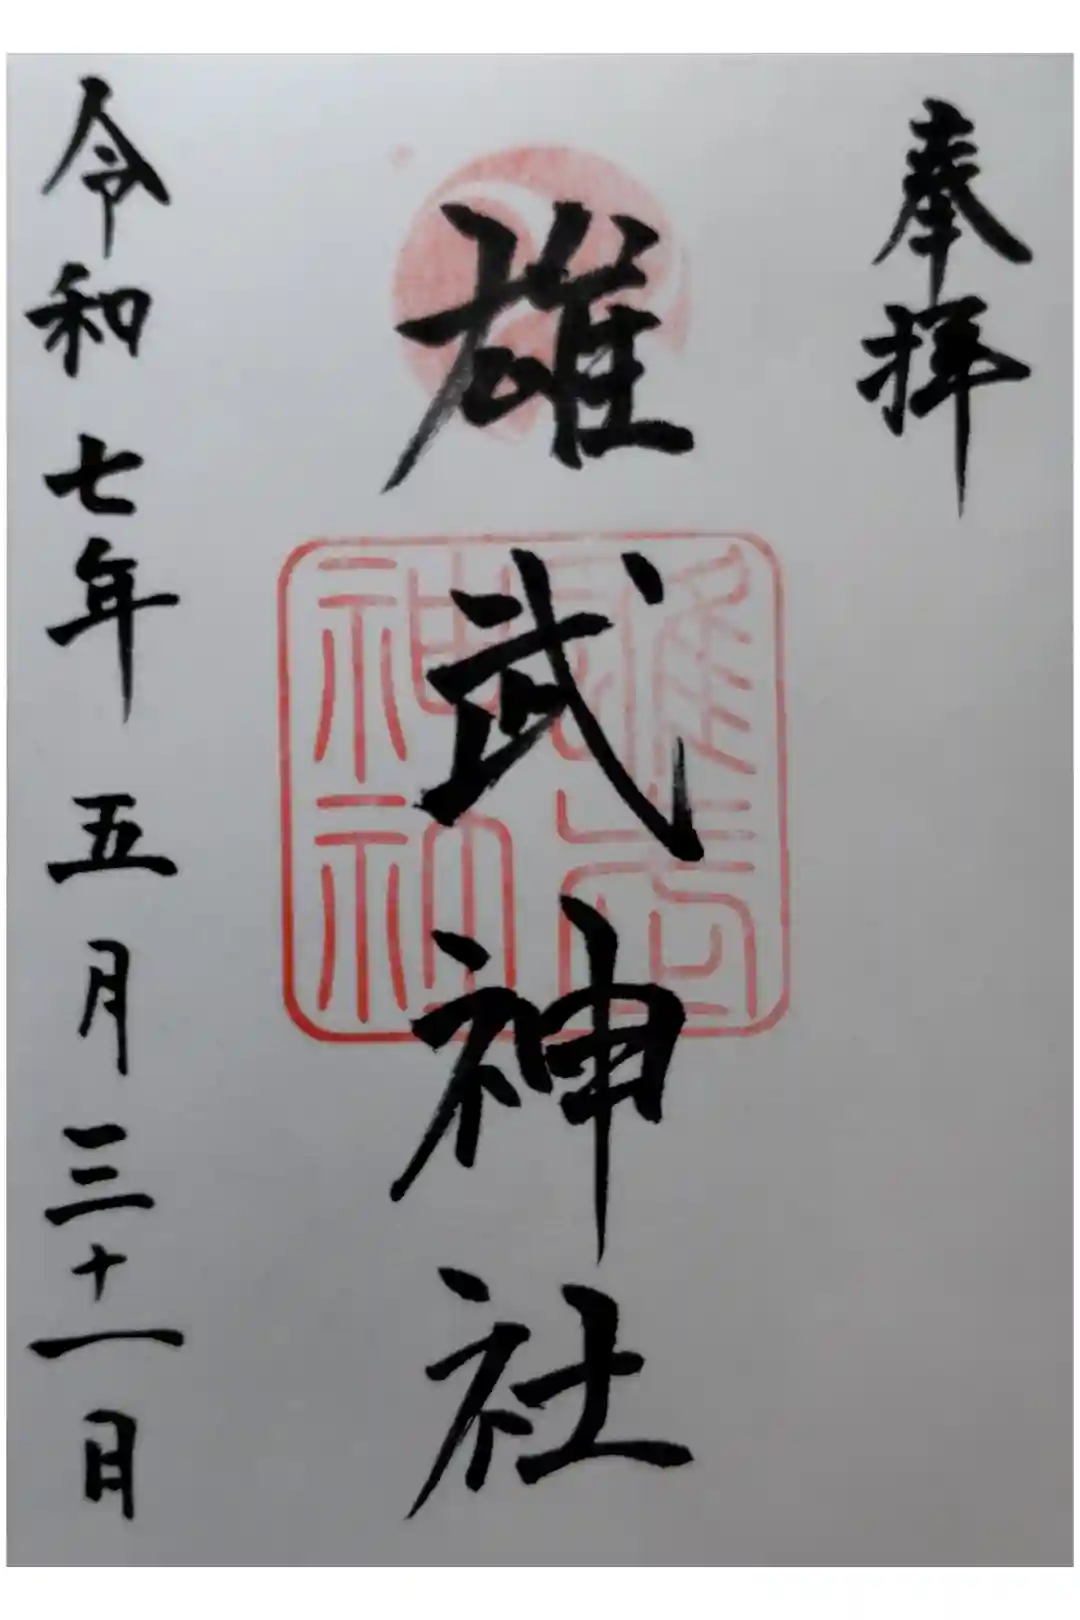 奉拝
雄武神社
雄武神社
令和七年五月三十一日